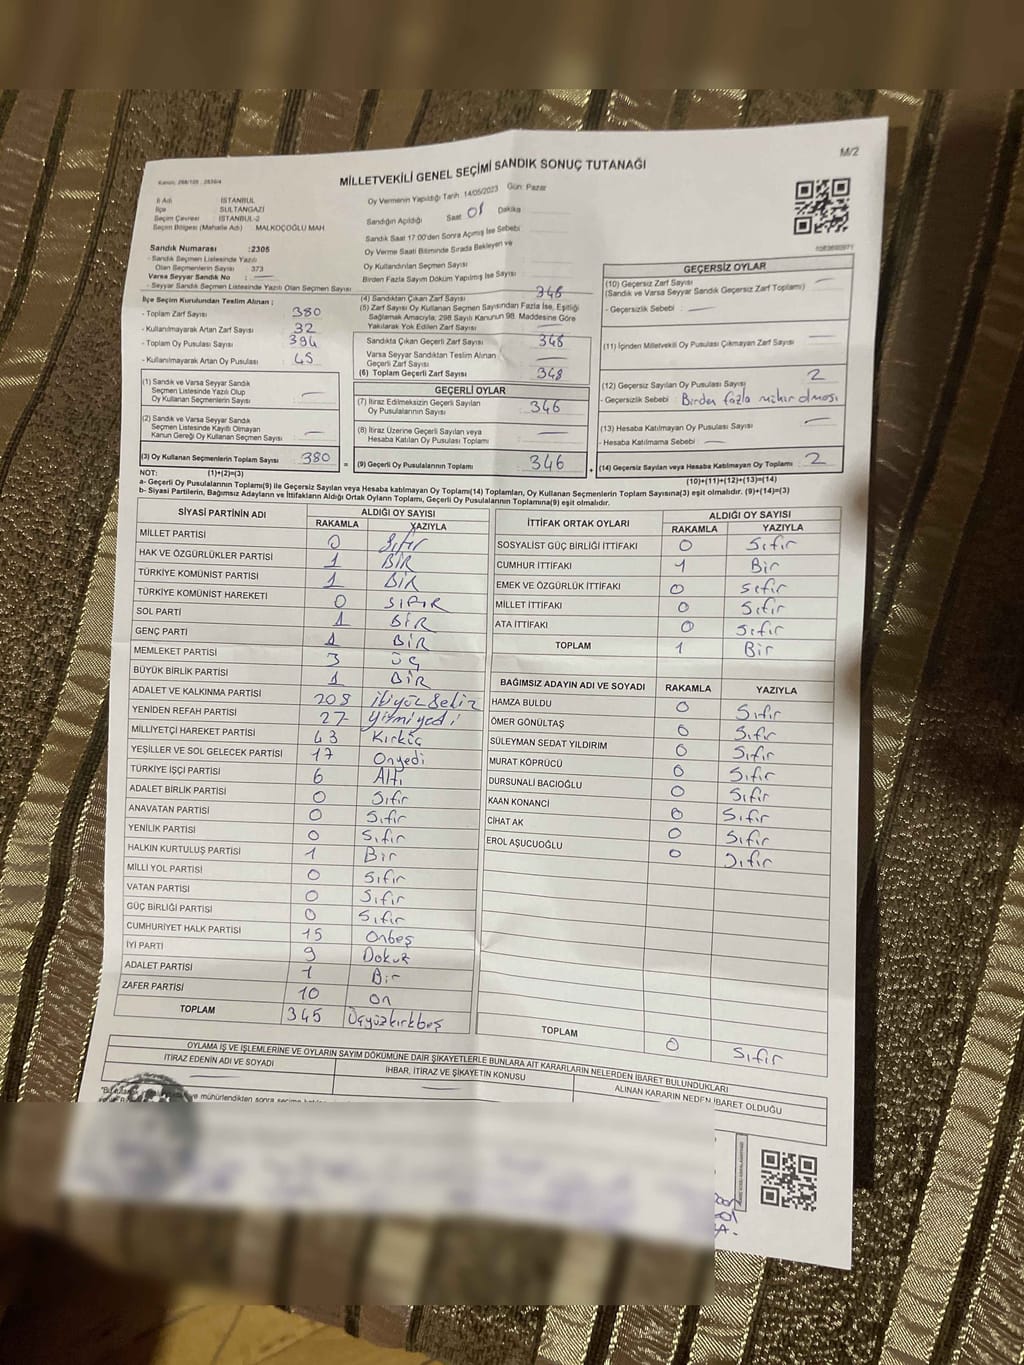 M/2
Kanun: 298/105 , 2839/4
MİLLETVEKİLİ GENEL SEÇİMİ SANDIK SONUÇ TUTANAĞI
İl Adı : İSTANBUL
İlçe : SULTANGAZİ
Seçim Çevresi : İSTANBUL-2
Seçim Bölgesi (Mahalle Adı) : MALKOÇOĞLU MAH.
Sandık Numarası : 2305
- Sandık Seçmen Listesinde Yazılı
Olan Seçmenlerin Sayısı : 373
Varsa Seyyar Sandık No :
- Seyyar Sandık Seçmen Listesinde Yazılı Olan Seçmen Sayısı
Oy Vermenin Yapıldığı Tarih 14/05/2023 Gün: Pazar
Sandığın Açıldığı Saat 08 Dakika
Sandık Saat 17:00'den Sonra Açılmış İse Sebebi
Oy Verme Saati Bitiminde Sırada Bekleyen ve
Oy Kullandırılan Seçmen Sayısı
Birden Fazla Sayım Döküm Yapılmış İse Sayısı
İlçe Seçim Kurulundan Teslim Alınan ;
- Toplam Zarf Sayısı : 380
- Kullanılmayarak Artan Zarf Sayısı : 32
- Toplam Oy Pusulası Sayısı : 394
- Kullanılmayarak Artan Oy Pusulası : 45
(1) Sandık ve Varsa Seyyar Sandık
Seçmen Listesinde Yazılı Olup
Oy Kullanan Seçmenlerin Sayısı :
(2) Sandık ve Varsa Seyyar Sandık
Seçmen Listesinde Kayıtlı Olmayan
Kanun Gereği Oy Kullanan Seçmen Sayısı :
(3) Oy Kullanan Seçmenlerin Toplam Sayısı : 380
(4) Sandıktan Çıkan Zarf Sayısı : 348
(5) Zarf Sayısı Oy Kullanan Seçmen Sayısından Fazla İse, Eşitliği
Sağlamak Amacıyla; 298 Sayılı Kanunun 98. Maddesine Göre
Yakılarak Yok Edilen Zarf Sayısı :
Sandıkta Çıkan Geçerli Zarf Sayısı : 348
Varsa Seyyar Sandıktan Teslim Alınan
Geçerli Zarf Sayısı :
(6) Toplam Geçerli Zarf Sayısı : 348
GEÇERLİ OYLAR
(7) İtiraz Edilmeksizin Geçerli Sayılan
Oy Pusulalarının Sayısı : 346
(8) İtiraz Üzerine Geçerli Sayılan veya
Hesaba Katılan Oy Pusulası Toplamı :
(9) Geçerli Oy Pusulalarının Toplamı : 346
GEÇERSİZ OYLAR
(10) Geçersiz Zarf Sayısı
(Sandık ve Varsa Seyyar Sandık Geçersiz Zarf Toplamı) :
- Geçersizlik Sebebi :
(11) İçinden Milletvekili Oy Pusulası Çıkmayan Zarf Sayısı :
(12) Geçersiz Sayılan Oy Pusulası Sayısı : 2
- Geçersizlik Sebebi : Birden fazla mühür olması
(13) Hesaba Katılmayan Oy Pusulası Sayısı :
- Hesaba Katılmama Sebebi :
(14) Geçersiz Sayılan veya Hesaba Katılmayan Oy Toplamı : 2
NOT: (1)+(2)=(3)
(10)+(11)+(12)+(13)=(14)
a- Geçerli Oy Pusulalarının Toplamı(9) ile Geçersiz Sayılan veya Hesaba katılmayan Oy Toplamı(14) Toplamları, Oy Kullanan Seçmenlerin Toplam Sayısına(3) eşit olmalıdır. (9)+(14)=(3)
b- Siyasi Partilerin, Bağımsız Adayların ve İttifakların Aldığı Ortak Oyların Toplamı, Geçerli Oy Pusulalarının Toplamına(9) eşit olmalıdır.
SİYASİ PARTİNİN ADI ALDIĞI OY SAYISI
RAKAMLA YAZIYLA
MİLLET PARTİSİ 0 Sıfır
HAK VE ÖZGÜRLÜKLER PARTİSİ 1 BİR
TÜRKİYE KOMÜNİST PARTİSİ 1 BİR
TÜRKİYE KOMÜNİST HAREKETİ 0 SIFIR
SOL PARTİ 1 BİR
GENÇ PARTİ 1 BİR
MEMLEKET PARTİSİ 3 ÜÇ
BÜYÜK BİRLİK PARTİSİ 1 BİR
ADALET VE KALKINMA PARTİSİ 208 ikiyüzSekiz
YENİDEN REFAH PARTİSİ 27 yirmiyedi
MİLLİYETÇİ HAREKET PARTİSİ 43 Kırküç
YEŞİLLER VE SOL GELECEK PARTİSİ 17 Onyedi
TÜRKİYE İŞÇİ PARTİSİ 6 Altı
ADALET BİRLİK PARTİSİ 0 Sıfır
ANAVATAN PARTİSİ 0 Sıfır
YENİLİK PARTİSİ 0 Sıfır
HALKIN KURTULUŞ PARTİSİ 1 Bir
MİLLİ YOL PARTİSİ 0 Sıfır
VATAN PARTİSİ 0 Sıfır
GÜÇ BİRLİĞİ PARTİSİ 0 Sıfır
CUMHURİYET HALK PARTİSİ 15 Onbeş
İYİ PARTİ 9 Dokuz
ADALET PARTİSİ 1 Bir
ZAFER PARTİSİ 10 On
TOPLAM 345 Üçyüzkırkbeş
İTTİFAK ORTAK OYLARI ALDIĞI OY SAYISI
RAKAMLA YAZIYLA
SOSYALİST GÜÇ BİRLİĞİ İTTİFAKI 0 Sıfır
CUMHUR İTTİFAKI 1 Bir
EMEK VE ÖZGÜRLÜK İTTİFAKI 0 Sıfır
MİLLET İTTİFAKI 0 Sıfır
ATA İTTİFAKI 0 Sıfır
TOPLAM 1 Bir
BAĞIMSIZ ADAYIN ADI VE SOYADI RAKAMLA YAZIYLA
HAMZA BULDU 0 Sıfır
ÖMER GÖNÜLTAŞ 0 Sıfır
SÜLEYMAN SEDAT YILDIRIM 0 Sıfır
MURAT KÖPRÜCÜ 0 Sıfır
DURSUNALİ BACIOĞLU 0 Sıfır
KAAN KONANCİ 0 Sıfır
CİHAT AK 0 Sıfır
EROL AŞUCUOĞLU 0 Sıfır
TOPLAM 0 Sıfır
OYLAMA İŞ VE İŞLEMLERİNE VE OYLARIN SAYIM DÖKÜMÜNE DAİR ŞİKAYETLERLE BUNLARA AİT KARARLARIN NELERDEN İBARET BULUNDUKLARI
İTİRAZ EDENİN ADI VE SOYADI
İHBAR, İTİRAZ VE ŞİKAYETİN KONUSU
ALINAN KARARIN NEDEN İBARET OLDUĞU